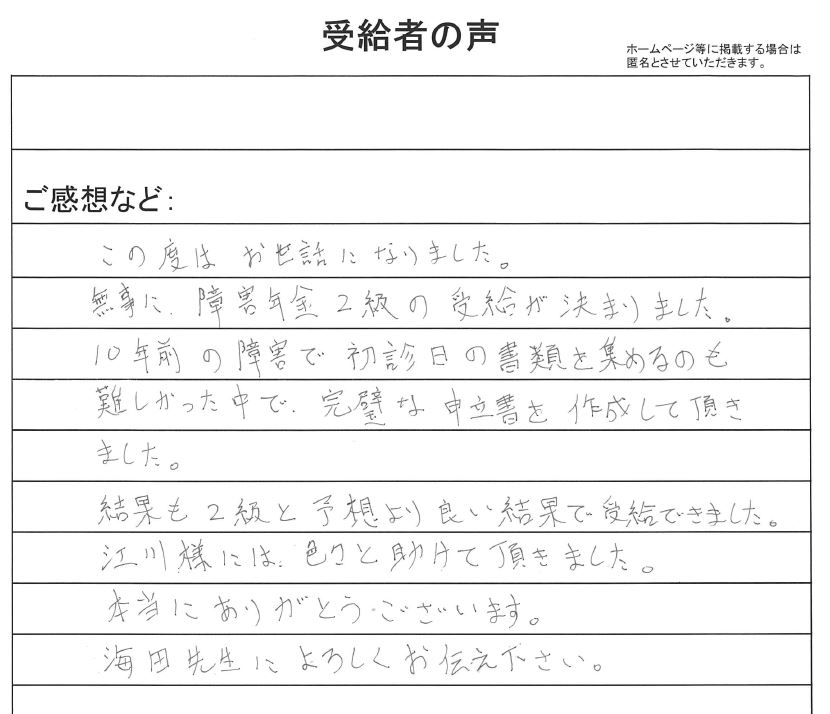 受給者の声
ホームページ等に掲載する場合は
匿名とさせていただきます。
ご感想など:
この度は お世話になりました。
無事に、障害年金2級の受給が決まりました。
10年前の障害で初診日の書類を集めるのも
難しかった中で、完璧な申立書を作成して頂き
ました。
結果も2級と予想より良い結果で受給できました。
江川様には、色々と助けて頂きました。
本当にありがとうございます。
海田先生によろしくお伝え下さい。